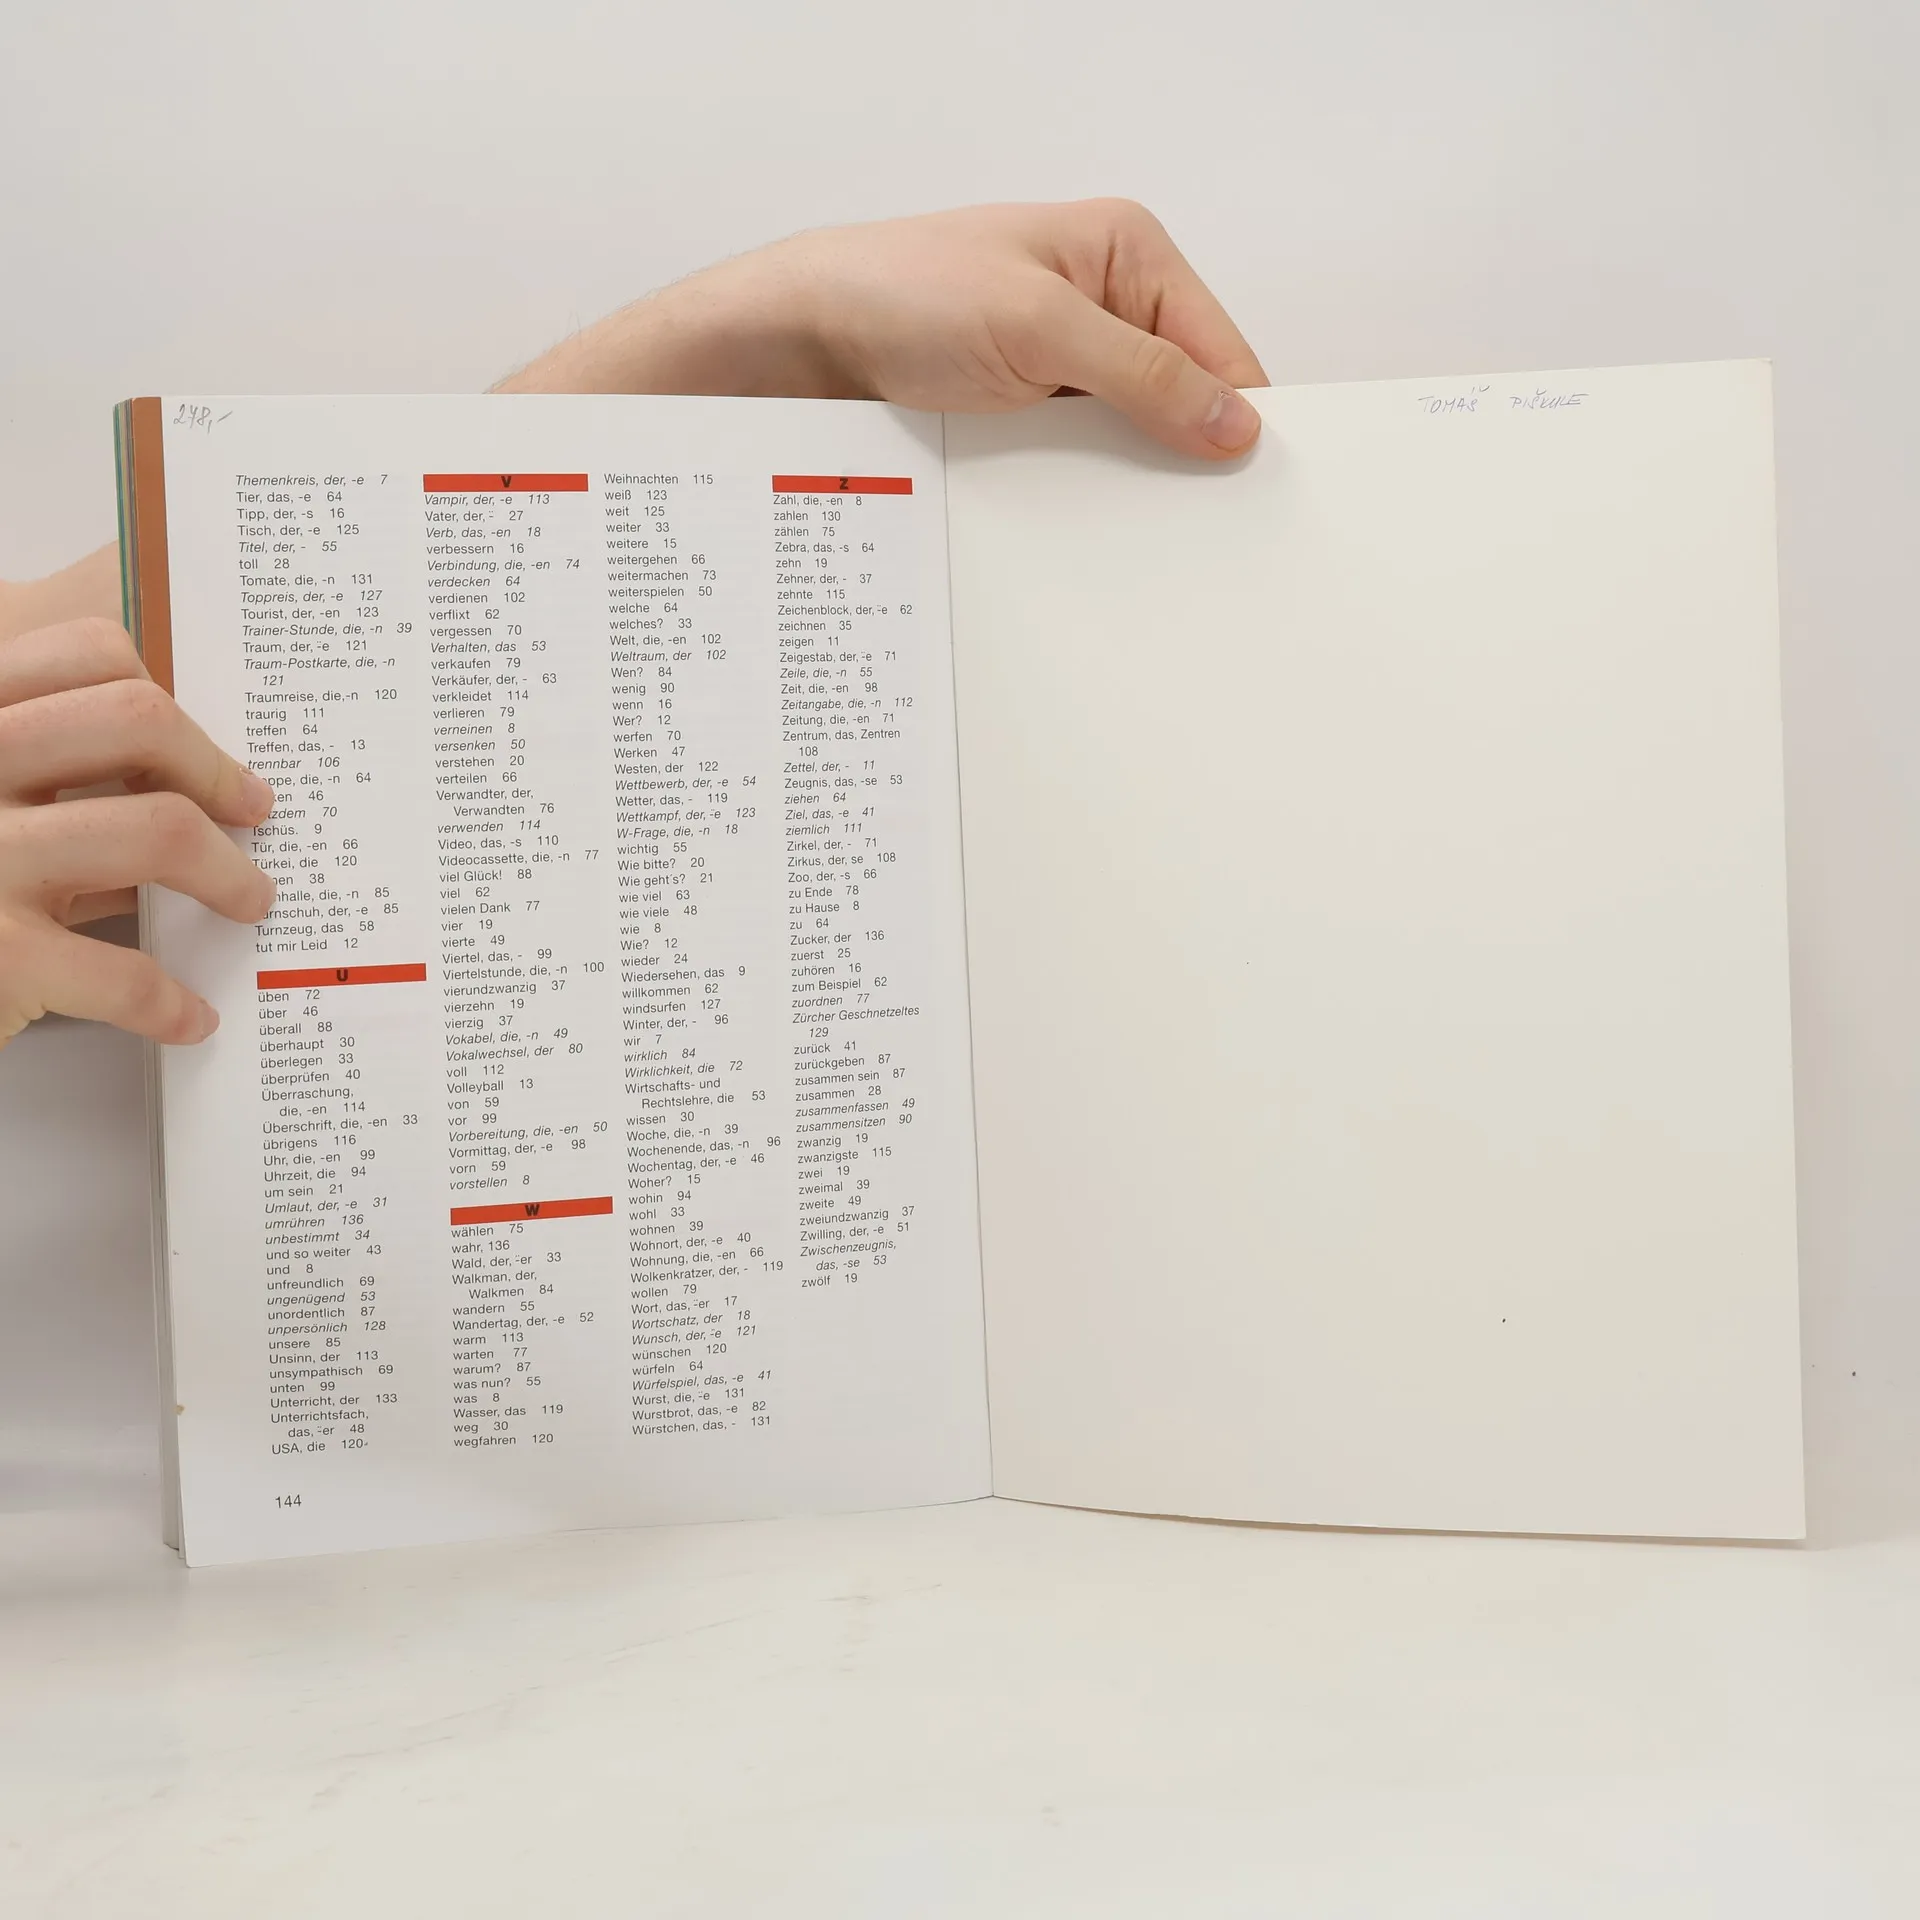 278,-
TOMÁŠ PIŠKULE
Themenkreis, der, -e 7
Tier, das, -e 64
Tipp, der, -s 16
Tisch, der, -e 125
Titel, der, - 55
toll 28
Tomate, die, -n 131
Toppreis, der, -e 127
Tourist, der, -en 123
Trainer-Stunde, die, -n 39
Traum, der, ¨-e 121
Traum-Postkarte, die, -n
121
Traumreise, die,-n 120
traurig 111
treffen 64
Treffen, das, - 13
trennbar 106
die, -n 64
46
70
Tschüs. 9
Tür, die, -en 66
Türkei, die 120
38
die, -n 85
der, -e 85
Turnzeug, das 58
tut mir Leid 12
U
üben 72
über 46
überall 88
überhaupt 30
überlegen 33
überprüfen 40
Überraschung,
die, -en 114
Überschrift, die, -en 33
übrigens 116
Uhr, die, -en 99
Uhrzeit, die 94
um sein 21
Umlaut, der, -e 31
umrühren 136
unbestimmt 34
und so weiter 43
und 8
unfreundlich 69
ungenügend 53
unordentlich 87
unpersönlich 128
unsere 85
Unsinn, der 113
unsympathisch 69
unten 99
Unterricht, der 133
Unterrichtsfach,
das, ¨-er 48
USA, die 120
144
V
Vampir, der, -e 113
Vater, der, ¨- 27
Verb, das, -en 18
verbessern 16
Verbindung, die, -en 74
verdecken 64
verdienen 102
verflixt 62
vergessen 70
Verhalten, das 53
verkaufen 79
Verkäufer, der, - 63
verkleidet 114
verlieren 79
verneinen 8
versenken 50
verstehen 20
verteilen 66
Verwandter, der,
Verwandten 76
verwenden 114
Video, das, -s 110
Videocassette, die, -n 77
viel Glück! 88
viel 62
vielen Dank 77
vier 19
vierte 49
Viertel, das, - 99
Viertelstunde, die, -n 100
vierundzwanzig 37
vierzehn 19
vierzig 37
Vokabel, die, -n 49
Vokalwechsel, der 80
voll 112
Volleyball 13
von 59
vor 99
Vorbereitung, die, -en 50
Vormittag, der, -e 98
vorn 59
vorstellen 8
W
wählen 75
wahr, 136
Wald, der, ¨-er 33
Walkman, der,
Walkmen 84
wandern 55
Wandertag, der, -e 52
warm 113
warten 77
warum? 87
was nun? 55
was 8
Wasser, das 119
weg 30
wegfahren 120
Weihnachten 115
weiß 123
weit 125
weiter 33
weitere 15
weitergehen 66
weitermachen 73
weiterspielen 50
welche 64
welches? 33
Welt, die, -en 102
Weltraum, der 102
Wen? 84
wenig 90
wenn 16
Wer? 12
werfen 70
Werken 47
Westen, der 122
Wettbewerb, der, -e 54
Wetter, das, - 119
Wettkampf, der, ¨-e 123
W-Frage, die, -n 18
wichtig 55
Wie bitte? 20
Wie geht's? 21
wie viel 63
wie viele 48
wie 8
Wie? 12
wieder 24
Wiedersehen, das 9
willkommen 62
windsurfen 127
Winter, der, - 96
wir 7
wirklich 84
Wirklichkeit, die 72
Wirtschafts- und
Rechtslehre, die 53
wissen 30
Woche, die, -n 39
Wochenende, das, -n 96
Wochentag, der, -e 46
Woher? 15
wohin 94
wohl 33
wohnen 39
Wohnort, der, -e 40
Wohnung, die, -en 66
Wolkenkratzer, der, - 119
wollen 79
Wort, das, ¨-er 17
Wortschatz, der 18
Wunsch, der, ¨-e 121
wünschen 120
würfeln 64
Würfelspiel, das, -e 41
Wurst, die, ¨-e 131
Wurstbrot, das, -e 82
Würstchen, das, - 131
Z
Zahl, die, -en 8
zahlen 130
zählen 75
Zebra, das, -s 64
zehn 19
Zehner, der, - 37
zehnte 115
Zeichenblock, der, ¨-e 62
zeichnen 35
zeigen 11
Zeigestab, der, ¨-e 71
Zeile, die, -n 55
Zeit, die, -en 98
Zeitangabe, die, -n 112
Zeitung, die, -en 71
Zentrum, das, Zentren
108
Zettel, der, - 11
Zeugnis, das, -se 53
ziehen 64
Ziel, das, -e 41
ziemlich 111
Zirkel, der, - 71
Zirkus, der, se 108
Zoo, der, -s 66
zu Ende 78
zu Hause 8
zu 64
Zucker, der 136
zuerst 25
zuhören 16
zum Beispiel 62
zuordnen 77
Zürcher Geschnetzeltes
129
zurück 41
zurückgeben 87
zusammen sein 87
zusammen 28
zusammenfassen 49
zusammensitzen 90
zwanzig 19
zwanzigste 115
zwei 19
zweimal 39
zweite 49
zweiundzwanzig 37
Zwilling, der, -e 51
Zwischenzeugnis,
das, -se 53
zwölf 19